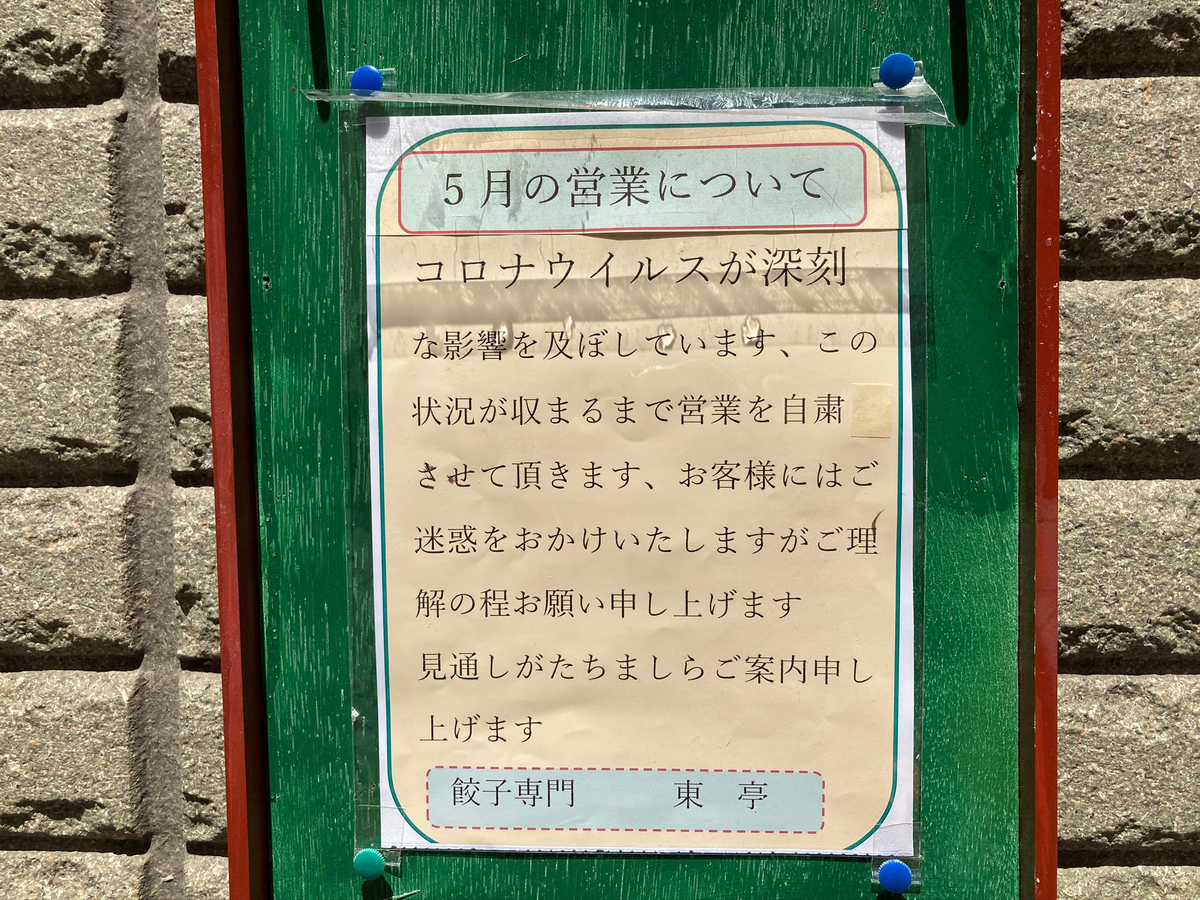 5月の営業について
コロナウイルスが深刻
な影響を及ぼしています、この
状況が収まるまで営業を自粛
させて頂きます、お客様にはご
迷惑をおかけいたしますがご理
解の程お願い申し上げます
見通しがたちましらご案内申し
上げます
餃子専門　　　東　亭